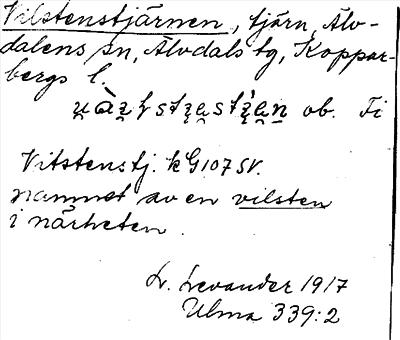 Vilstenstjärnen, tjärn, Älv-
dalens sn, Älvdals tg, Koppar-
bergs l.
ob. Fi
Vitstenstj. k G107 SV.
namnet av en vilsten
i närheten.
L. Levander 1917
Ulma 339:2